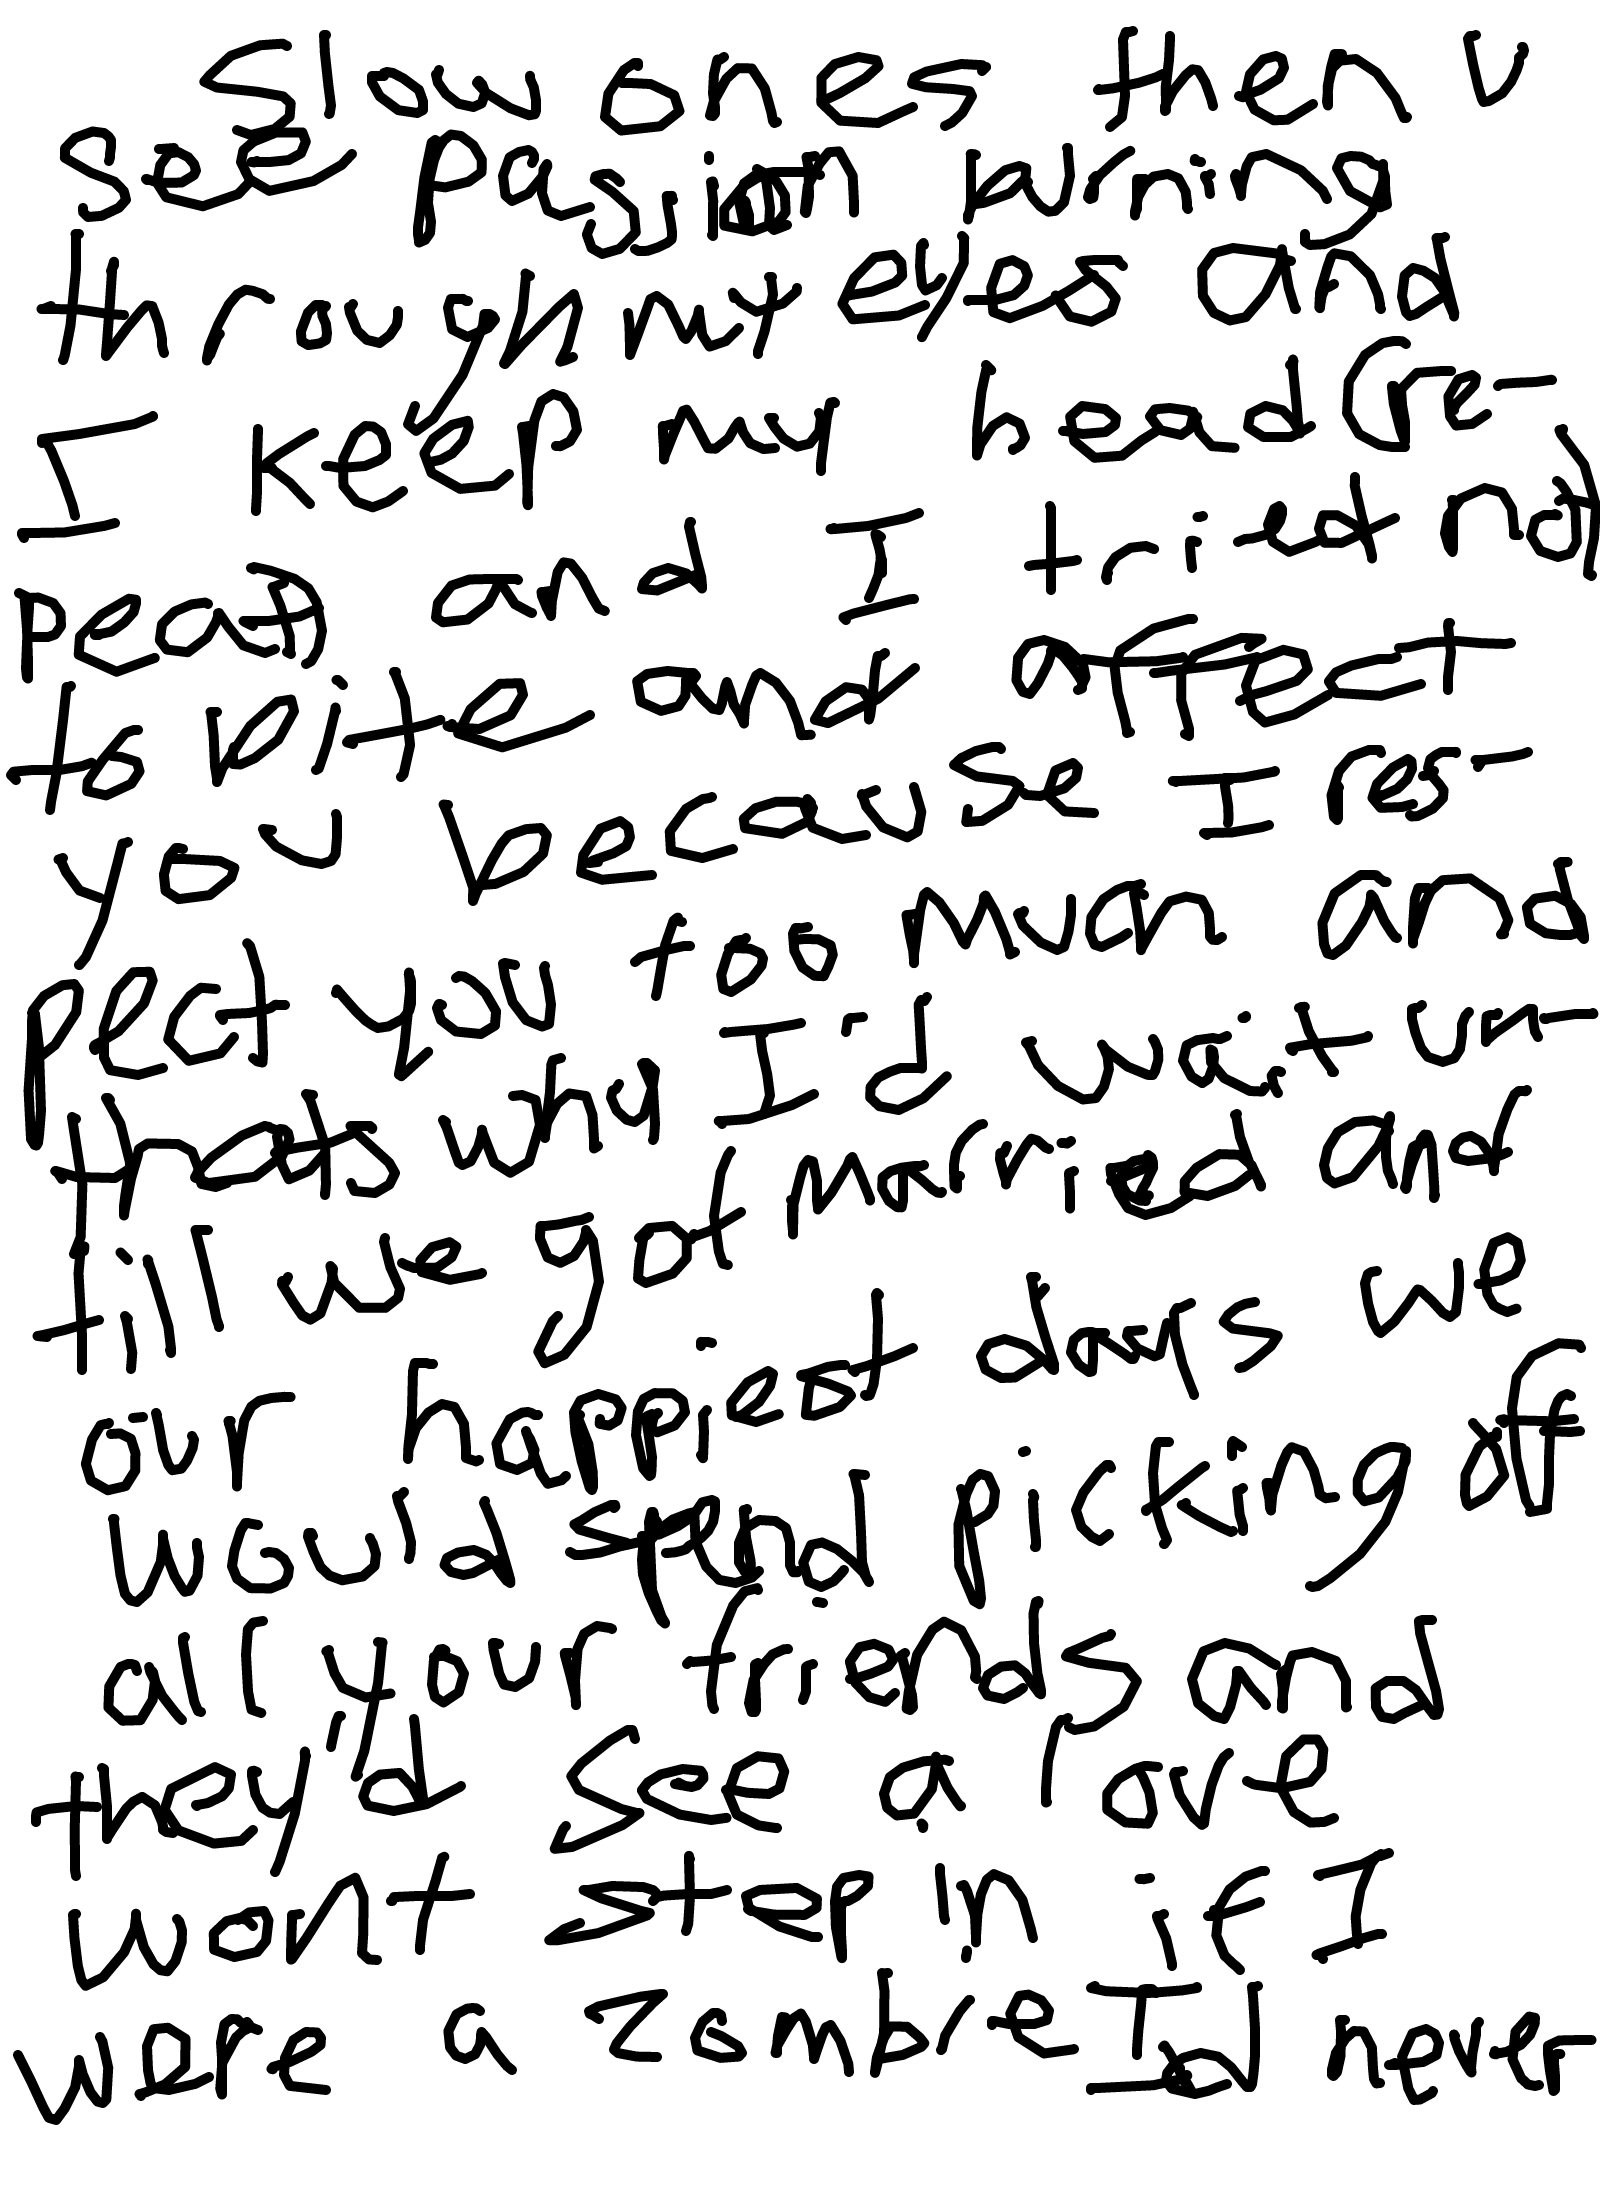 Slow ones then u
see passion burning
through my eyes and
I keep my head (re-
peat) and I tried not
to bite and affect
you because I res-
pect you too much and
thats why I'd wait un-
till we got married and
our happiest days we
would spend picking off
all your friends and
they'd see a love
wont step in if I
were a zombie I'd never